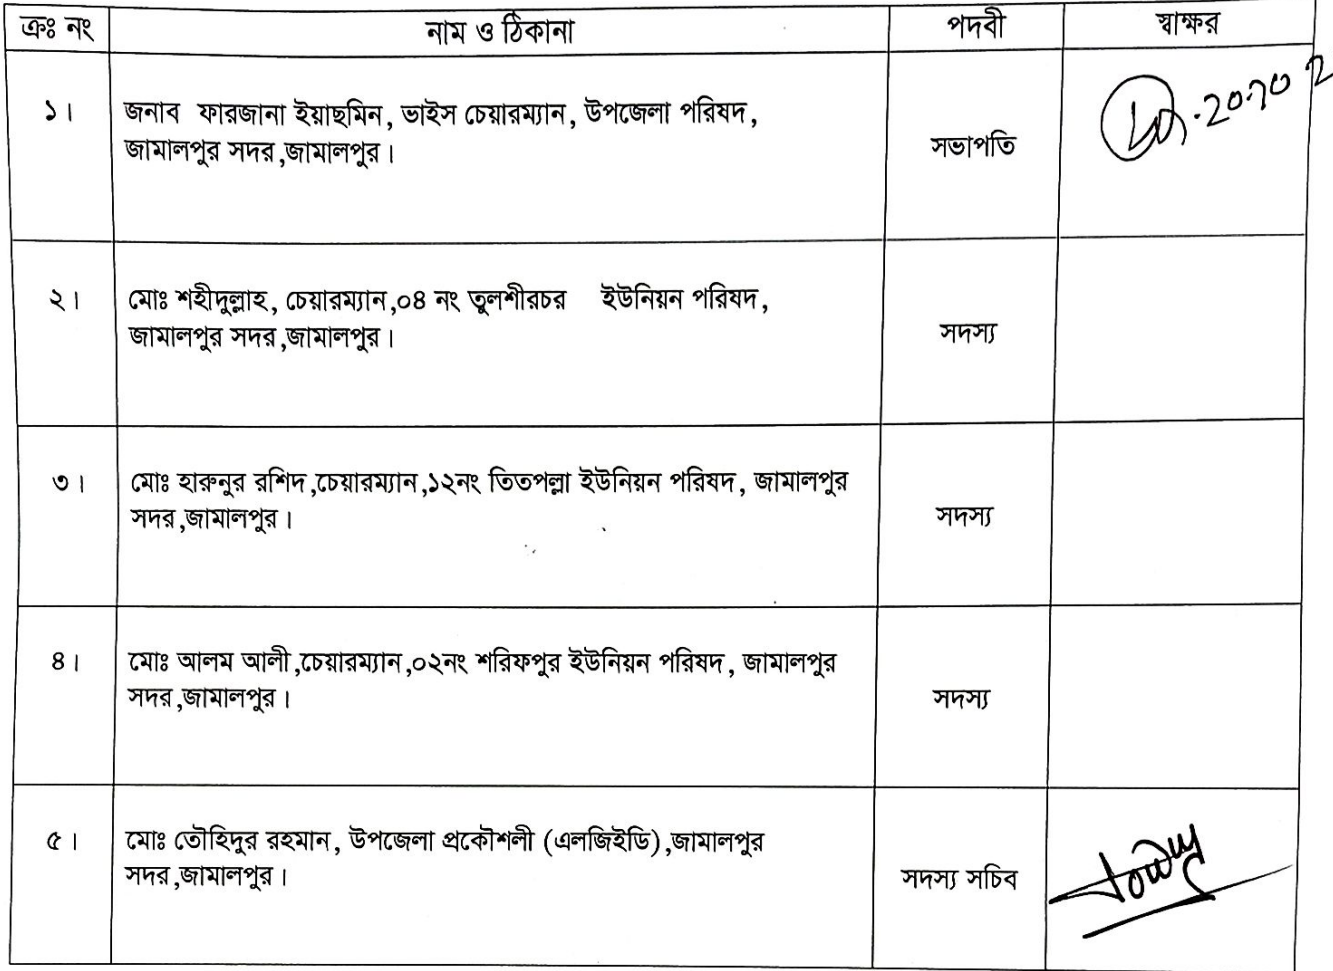 ক্রঃ নং নাম ও ঠিকানা পদবী স্বাক্ষর
১। জনাব ফারজানা ইয়াছমিন, ভাইস চেয়ারম্যান, উপজেলা পরিষদ,
জামালপুর সদর,জামালপুর।
সভাপতি
২। মোঃ শহীদুল্লাহ, চেয়ারম্যান,০৪ নং তুলশীরচর ইউনিয়ন পরিষদ,
জামালপুর সদর,জামালপুর।
সদস্য
৩। মোঃ হারুনুর রশিদ,চেয়ারম্যান,১২নং তিতপল্লা ইউনিয়ন পরিষদ, জামালপুর
সদর,জামালপুর।
সদস্য
৪। মোঃ আলম আলী,চেয়ারম্যান,০২নং শরিফপুর ইউনিয়ন পরিষদ, জামালপুর
সদর,জামালপুর।
সদস্য
৫। মোঃ তৌহিদুর রহমান, উপজেলা প্রকৌশলী (এলজিইডি),জামালপুর
সদর,জামালপুর।
সদস্য সচিব